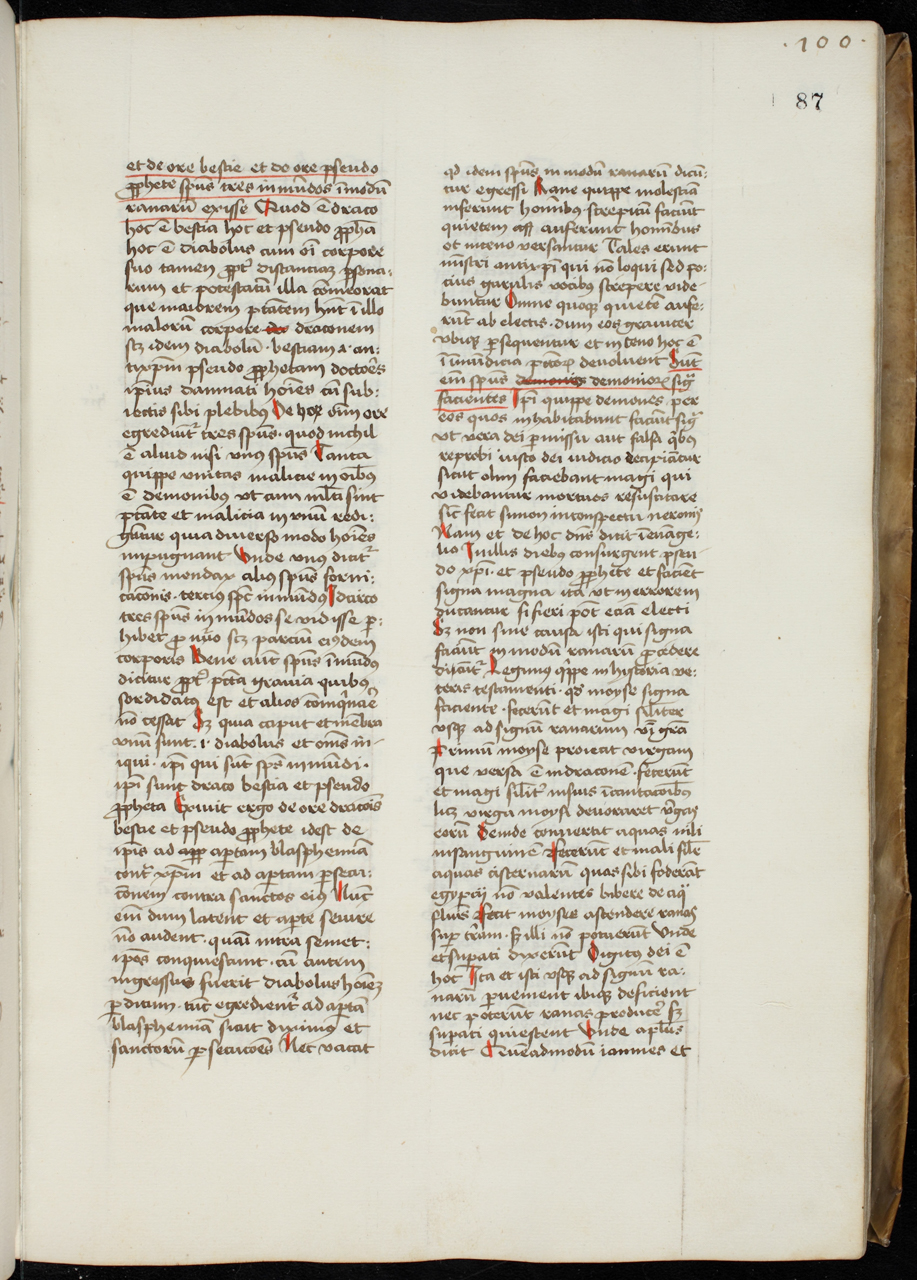 ·100·
87
et de ore bestie et de ore pseudo
ꝓphete spūs tres inmūdos ī modū
ranarū exisse Quod ē draco
hoc ē bestia hoc et pseudo ꝓpha
hoc ē diabolus cum oī corpore
suo tamen ꝓpt' distanciaꝫ psona:
rum et potestatū illa cōmeorat
que maiorem ptātem hn̄t ī illo
malorū corpore draconem
scꝫ idem diabolū · bestiam a· an:
tixpm̄ pseudo ꝓphetam doctores
ipius damnati hoīes cū sub:
iectis sibi plebibꝰ De hoꝝ oīm ore
egrediūt' tres spūs · quod nichil
ē aliud nisi vnus spūs Tanta
quippe vnitas malicie in oībus
ē demonibus vt cum mlti sint
ptāte et malicia in vnū redi:
gātur quia diuerso modo hoīes
inpugnant Vnde vnꝰ dicit'
spūs mendax alius spūs forni:
cacōnis · tercius spc inmūdꝰ Idcirco
tres spūs inmūdos se vidisse p:
hibet pro nūo scꝫ parciū eiꝰdem
corporis Bene aūt spūs īmūdꝰ
dicitur ꝓpt' pctā grauia quibus
sordidatus est et alios coinq'nāe
nō cessat Sꝫ quia caput et mēbra
vnū sunt · i· diabolus et om̄s in-
iqui · ipi qui sūt sps inmūdi ·
ipi sunt draco bestia et pseudo
ꝓpheta Exiuit ergo de ore dracōis
bestie et pseudo ꝓphete id est de
ipis ad apertam blasphemiā
cont' xpm̄ et ad apertam psecu:
cionem contra sanctos eiꝰ Nūc
eni dum latent et apte seuire
nō audent · quasi intra semet:
ipos conquiescunt · cū autem
ingressus fuerit diabolus hoīeꝫ
pditum · tūc egredient' ad aptā
blasphemiā sicut diximus et
sanctorū psecucōes Nec vacat
qd idem spūs in modū ranarū dicū:
tur egressi Rane quippe molestiā
inferunt hominibꝰ strepitū faciūt
quietem auferunt hominibus
et in ceno versantur Tales erunt
mīstri antixpi qui nō loqui sed po:
cius garulis vocibus strepere vide-
buntur Omne quoqꝫ quietē aufe:
rūt ab electis · dum eos grauiter
vbiqꝫ psequentur et in ceno hoc ē
ī inmūdicia pctoꝝ deuoluent Sūt
enī spūs demones demonioꝝ sig'
facientes Ipi quippe demones per
eos quos inhabitabunt faciūt sig'
vt vera dei pmissu aut falsa qbꝰ
reprobi iusto dei iudicio decipiātur
sicut olim faciebant magi qui
videbantur mortuos resuscitare
sic fecit simon in conspectu neronis
Nam et de hoc dn̄s dicit ī euāge:
lio In illis diebꝰ consurgent pseu-
do xpi · et pseudo ꝓphete et faciēt
signa magna ita vt in errorem
ducantur si fieri pōt eciā electi
Sꝫ non sine causa isti qui signa
faciūt in modū ranarū pcedere
dicūt' Legimꝰ q'ppe in historia ve:
teris testamenti · qd moyse signa
faciente · fecerūt et magi sil'iter
vsqꝫ ad signū ranarum
Primū moyse proiciat virgam
que versa ē in draconē · fecerūt
et magi sil't' in suis īcantacōibꝰ
licꝫ virga moysi deuoraret v'gas
eorū Deinde conuertit aquas nili
in sanguinē Fecerūt et mali sil'r
aquas cisternarū quas sibi foderāt
egypcij nō valentes bibere de aq'
fluīs Fecit moyses ascendere ranas
sup t'ram · sꝫ illi nō potuerūt Vnde
et supati dixerūt Digitꝰ dei ē
hoc Ita et isti vsqꝫ ad signū ra:
narū peruenient ibiqꝫ deficient
nec poterūt ranas producē sꝫ
supati quiescent Vnde apl'us
dicit Quēadmodū iannes et